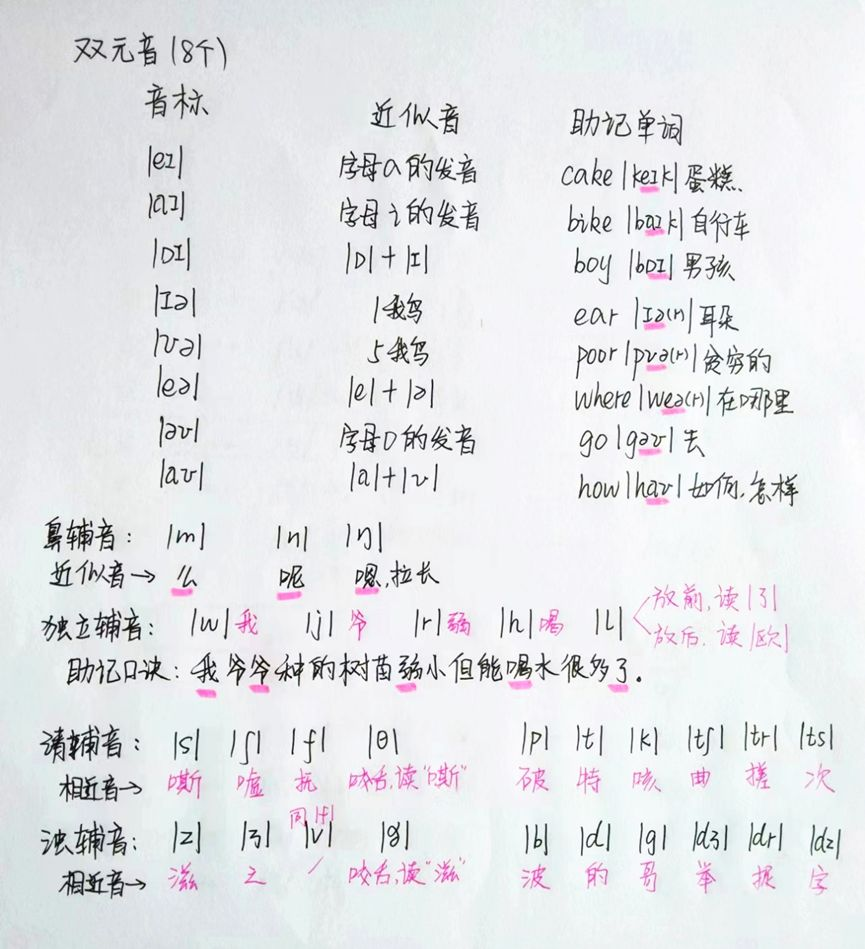 双元音(8个)
音标 近似音 助记单词
|eɪ| 字母a的发音 cake |keɪk| 蛋糕
|aɪ| 字母i的发音 bike |baɪk| 自行车
|ɒɪ| |ɒ|+|ɪ| boy |bɒɪ| 男孩
|ɪə| 1我鸟 ear |ɪə(r)| 耳朵
|ʊə| 5我鸟 poor |pʊə(r)| 贫穷的
|eə| |e|+|ə| where |weə(r)| 在哪里
|əʊ| 字母o的发音 go |gəʊ| 去
|aʊ| |a|+|ʊ| how |haʊ| 如何,怎样
鼻辅音: |m| |n| |ŋ|
近似音→ 么 呢 嗯,拉长
独立辅音: |w| 我 |j| 爷 |r| 弱 |h| 喝 |l| 放前,读|了|
放后,读|欧|
助记口诀:我爷爷种的树苗弱小但能喝水很多了.
清辅音: |s| |ʃ| |f| |θ| |p| |t| |k| |tʃ| |tr| |ts|
相近音→ 嘶 嘘 抚 咬舌,读"嘶" 破 特 咳 曲 搓 次
同|f|
浊辅音: |z| |ʒ| |v| |ð| |b| |d| |g| |dʒ| |dr| |dz|
相近音→ 滋 之 / 咬舌,读"滋" 波 的 哥 举 捉 字